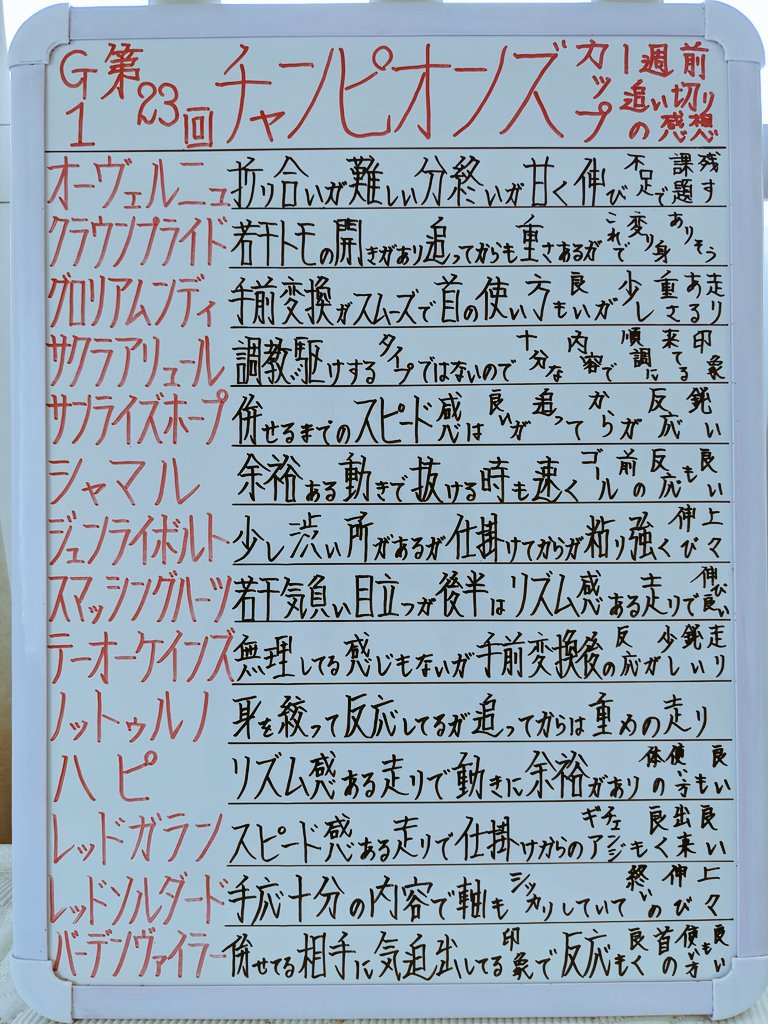 G1 第23回 チャンピオンズカップ 1週前追い切りの感想
オーヴェルニュ 折り合いが難しい分終いが甘く伸び不足で課題残す
クラウンプライド 若干トモの開きがあり追ってからも重さあるがこれで変り身ありそう
グロリアムンディ 手前変換がスムーズで首の使い方も良いが少し重さある走り
サクラアリュール 調教駆けするタイプではないので十分な内容で順調に来てる印象
サンライズホープ 併せるまでのスピード感は良いが追ってからが反応鈍い
シャマル 余裕ある動きで抜ける時も速くゴール前の反応も良い
ジュンライボルト 少し渋い所があるが仕掛けてからが粘り強く伸び上々
スマッシングハーツ 若干気負い目立つが後半はリズム感ある走りで伸び良い
テーオーケインズ 無理してる感じもないが手前変換後の反応が少し鋭い走り
ノットゥルノ 身を絞って反応してるが追ってからは重めの走り
ハピ リズム感ある走りで動きに余裕があり体の使い方も良い
レッドガラン スピード感ある走りで仕掛けからのギアチェンジも良く出来良い
レッドソルダード 手応十分の内容で軸もシッカリしていて終いの伸び上々
バーデンヴァイラー 併せてる相手に気迫出してる印象で反応も良く首の使い方も良い